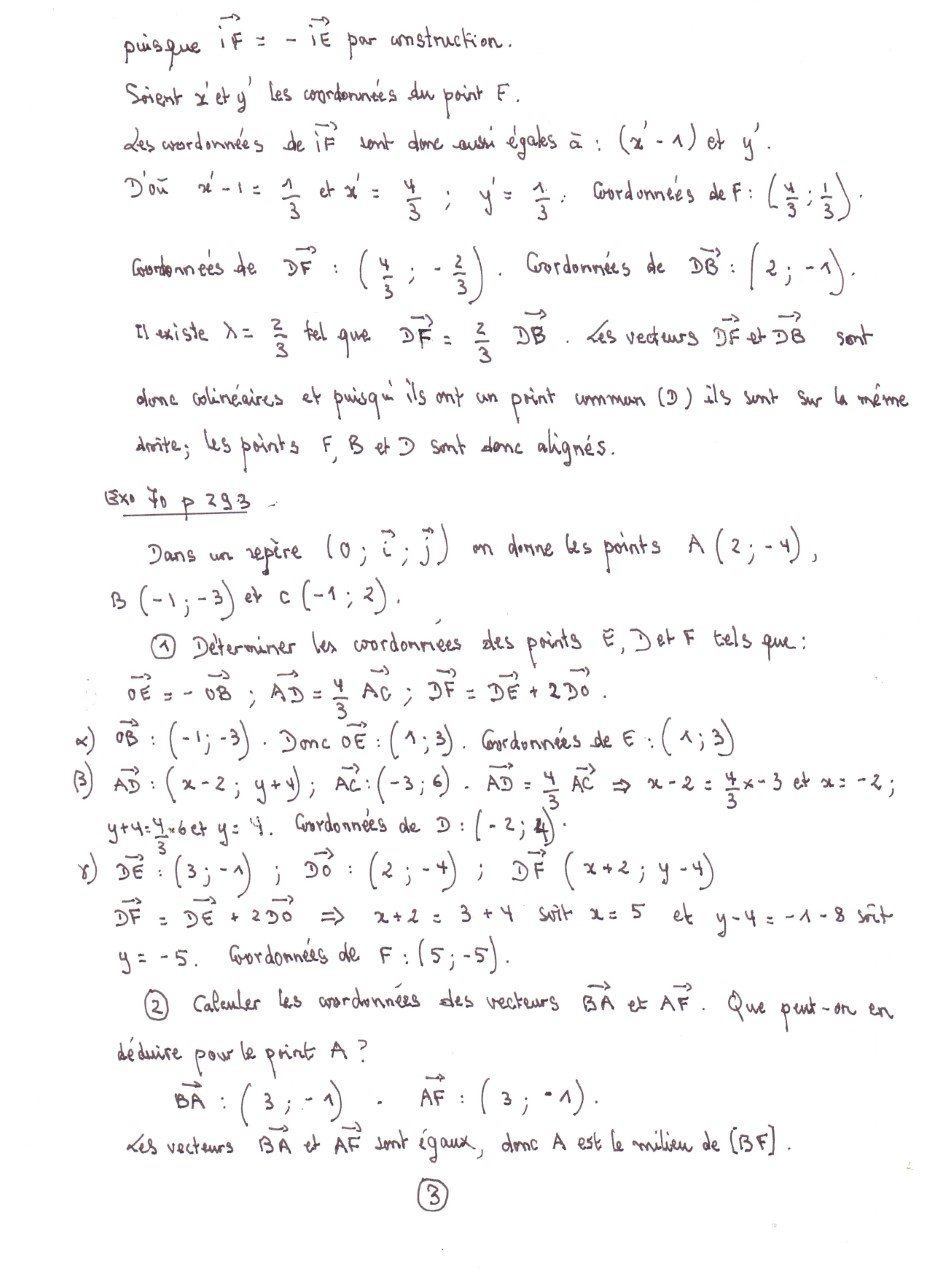 puisque $\vec{iF}$ = - $\vec{iE}$ par construction.
Soient x' et y' les coordonnées du point F.
Les coordonnées de $\vec{iF}$ sont donc aussi égales à : (x' - 1) et y'.
D'où x' - 1 = 1/3 et x' = 4/3 ; y' = 1/3. Coordonnées de F : (4/3 ; 1/3).
Coordonnées de $\vec{DF}$ : (4/3 ; -2/3). Coordonnées de $\vec{DB}$ : (2 ; -1).
Il existe λ = 2/3 tel que $\vec{DF}$ = 2/3 $\vec{DB}$. Les vecteurs $\vec{DF}$ et $\vec{DB}$ sont
donc colinéaires et puisqu'ils ont un point commun (D) ils sont sur la même
droite; les points F, B et D sont donc alignés.
Exo 70 p 293.
Dans un repère (O ; $\vec{i}$ ; $\vec{j}$) on donne les points A (2 ; -4),
B (-1 ; -3) et C (-1 ; 2).
① Déterminer les coordonnées des points E, D et F tels que :
$\vec{OE}$ = - $\vec{OB}$ ; $\vec{AD}$ = 4/3 $\vec{AC}$ ; $\vec{DF}$ = $\vec{DE}$ + 2$\vec{DO}$.
α) $\vec{OB}$ : (-1 ; -3). Donc $\vec{OE}$ : (1 ; 3). Coordonnées de E : (1 ; 3)
β) $\vec{AD}$ : (x - 2 ; y + 4) ; $\vec{AC}$ : (-3 ; 6). $\vec{AD}$ = 4/3 $\vec{AC}$ ⇒ x - 2 = 4/3 × -3 et x = -2 ;
y + 4 = 4/3 × 6 et y = 4. Coordonnées de D : (-2 ; 4).
γ) $\vec{DE}$ : (3 ; -1) ; $\vec{DO}$ : (2 ; -4) ; $\vec{DF}$ (x + 2 ; y - 4)
$\vec{DF}$ = $\vec{DE}$ + 2$\vec{DO}$ ⇒ x + 2 = 3 + 4 soit x = 5 et y - 4 = -1 - 8 soit
y = -5. Coordonnées de F : (5 ; -5).
② Calculer les coordonnées des vecteurs $\vec{BA}$ et $\vec{AF}$. Que peut-on en
déduire pour le point A ?
$\vec{BA}$ : (3 ; -1). $\vec{AF}$ : (3 ; -1).
Les vecteurs $\vec{BA}$ et $\vec{AF}$ sont égaux, donc A est le milieu de [BF].
③